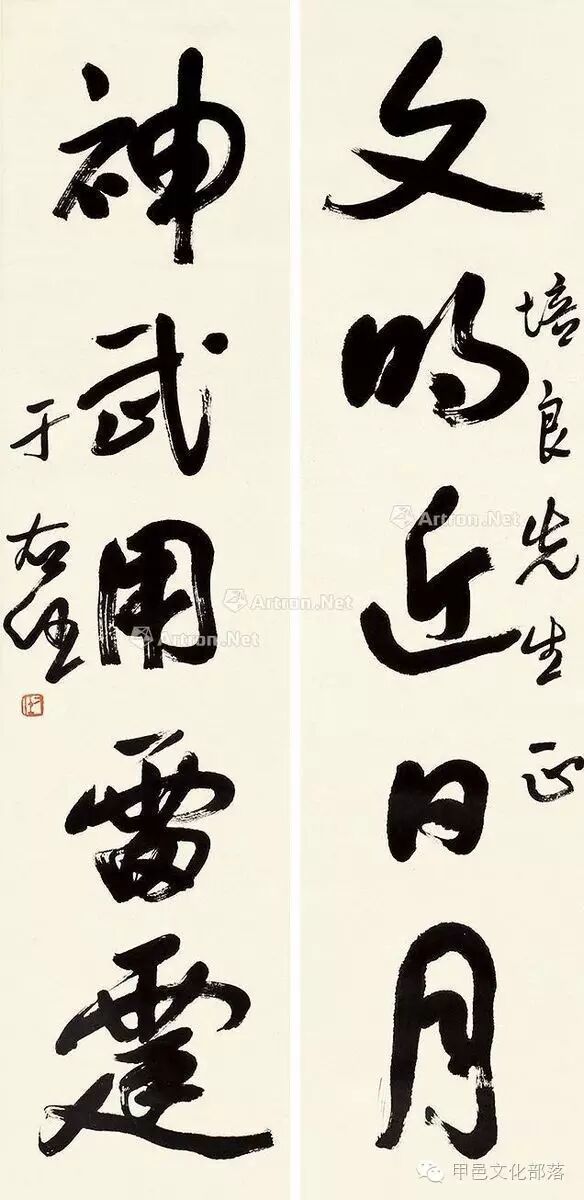 培良先生正
文明近日月
神武用雷霆
于右任
Artron.Net
Artron.Net
Artron.Net
甲邑文化部落